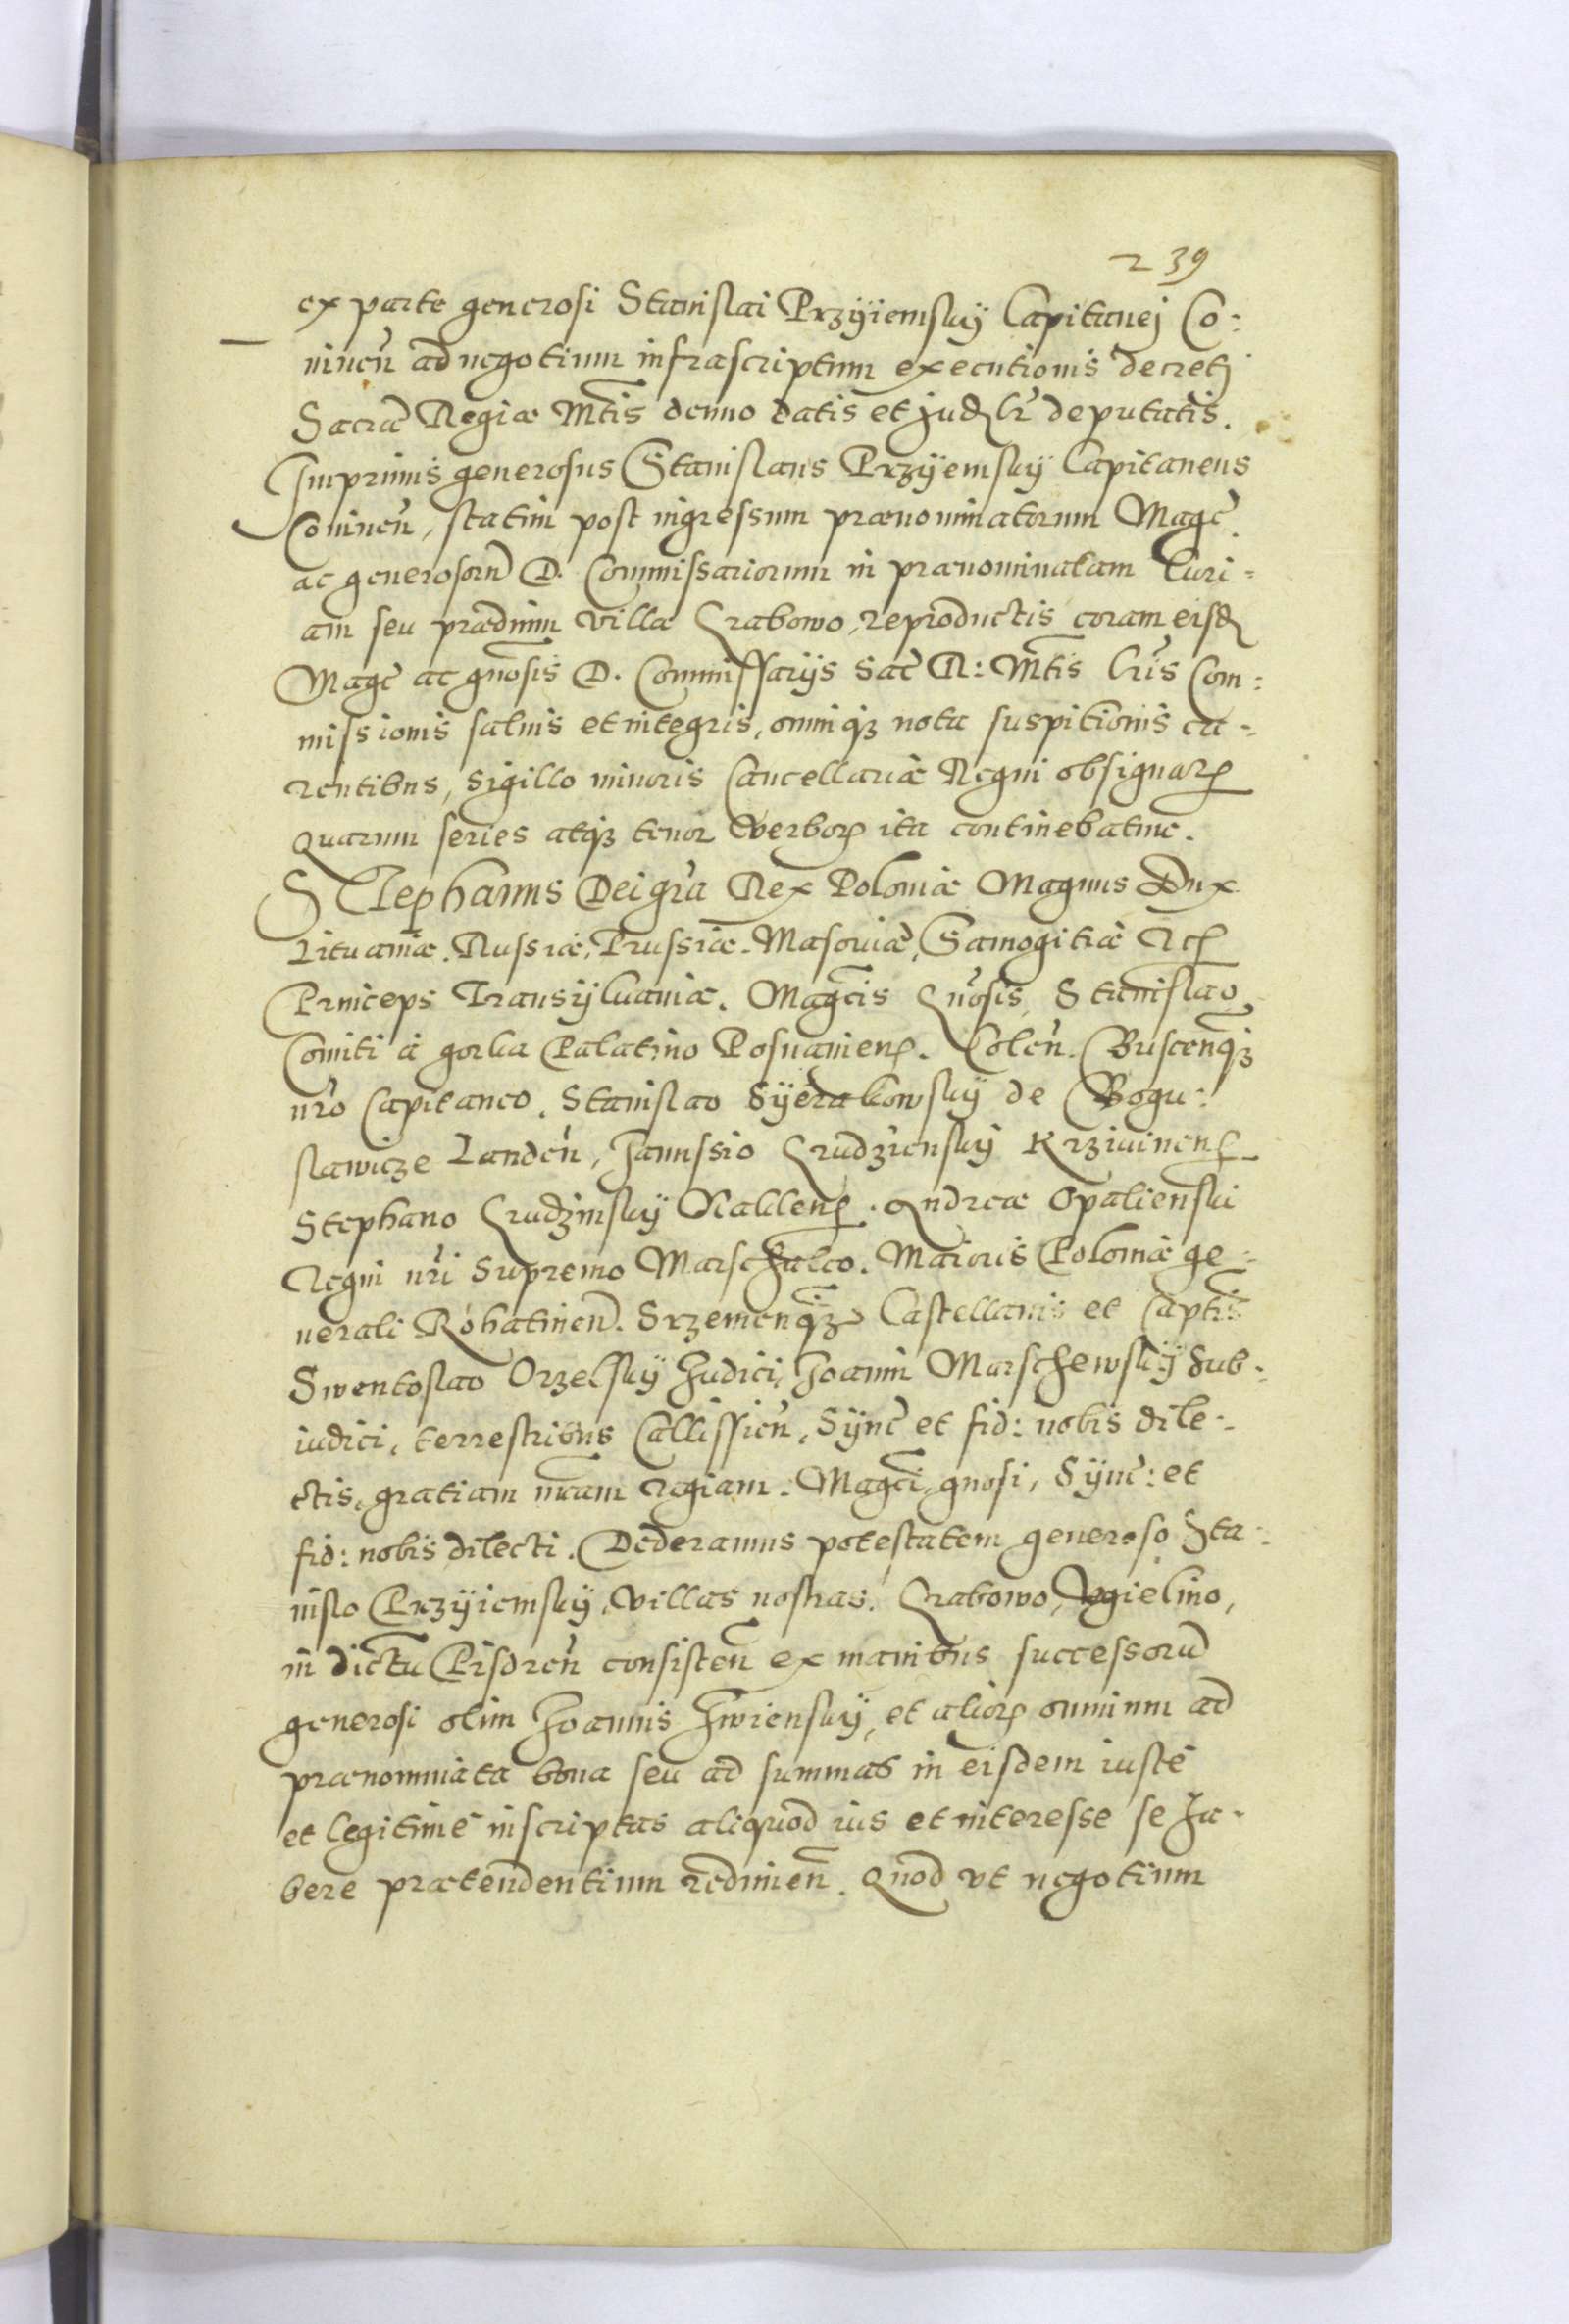 239
ex parte generosi Stanislai Przyiemsky Capitanej Co:
nincn̄ ad negotium infrascriptum executionis decretj
Sacræ Regiæ Mtis denuo datis et deputatis.
Imprimis generosus Stanislaus Przyemsky Capitaneus
Conincn̄, statim post ingressum prænominatorum Magc̄.
ac generosorū D. Commissariorum in prænominatam Curi-
am seu prædium villæ Grabowo, reproductis coram eisd
Magc̄ ac gnosis D. Commissarÿs Sac̄ R: Mtis lrīs Com:
missionis saluis et integris, omniqȝ nota suspitionis ca-
rentibus, Sigillo minoris Cancellariæ Regni obsignaꝝ
Quarum series atqȝ tenor verboꝝ ita continebatur.
STephanus Dei grā Rex Poloniæ Magnus Dux
Lituaniæ. Russiæ, Prussiæ. Masouiæ, Samogitiæ
Princeps Transÿluaniæ. Magcis Gnosis, Stanislao
Comiti à gorka Palatino Posnanien. Colen̄. Buscenqȝ
nrō Capitaneo. Stanislao Sÿerakowsky de Bogu:
slawicze Landen̄, Janussio Grudziensky Krziuinen
Stephano Grudzinsky Naklen. Andreæ Opalienski
Regni nrī Supremo Marschalco. Maioris Poloniæ ge-
nerali Rohatinen. Srzemenqȝ Castellanis et Captis
Swentoslao Orzelsky Judici, Joanni Marschewsky Sub-
iudici, terrestribus Callissien̄, Sÿnc̄ et fid: nobis dile-
ctis, gratiam nram regiam. Magci, gnosi, Sÿnc̄: et
fid: nobis dilecti. Dederamus potestatem generoso Sta-
nislo Przyiemsky, villas nostras. Grabowo, Vgielino,
in dictu Pisdren̄ consisten̄ ex manibus successorū
generosi olim Joannis Jwiensky, et alioꝝ omnium ad
prænominata bona seu ad summas in eisdem iustè
et legitimè inscriptas aliquod ius et interesse se ha-
bere prætendentium redimen̄. Quod vt negotium